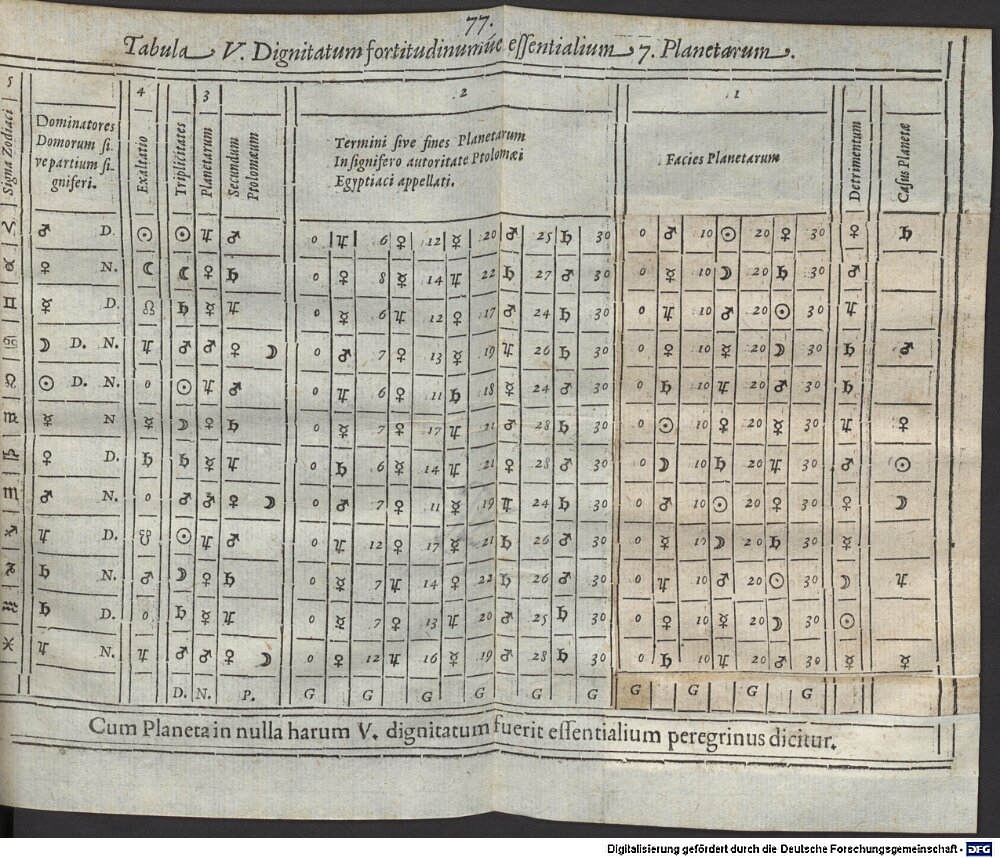 77.
Tabula V. Dignitatum fortitudinumúe essentialium 7. Planetarum.
5 4 3 2 1
Signa Zodiaci
Dominatores
Domorum si-
ve partium si-
gniferi.
Exaltatio
Triplicitates
Planetarum
Secundum
Ptolomæum
Termini sive fines Planetarum
In signifero autoritate Ptolomæi
Egyptiaci appellati.
Facies Planetarum
Detrimentum
Casus Planetæ
♈ ♂ D. ☉ ☉ ♃ ♂ 0 ♃ 6 ♀ 12 ☿ 20 ♂ 25 ♄ 30 0 ♂ 10 ☉ 20 ♀ 30 ♀ ♄
♉ ♀ N. ☾ ☾ ♀ ♄ 0 ♀ 8 ☿ 14 ♃ 22 ♄ 27 ♂ 30 0 ☿ 10 ☽ 20 ♄ 30 ♂
♊ ☿ D. ☊ ♄ ☿ ♃ 0 ☿ 6 ♃ 12 ♀ 17 ♂ 24 ♄ 30 0 ♃ 10 ♂ 20 ☉ 30 ♃
♋ ☽ D. N. ♃ ♂ ♂ ♀ ☽ 0 ♂ 7 ♀ 13 ☿ 19 ♃ 26 ♄ 30 0 ♀ 10 ☿ 20 ☽ 30 ♄ ♂
♌ ☉ D. N. 0 ☉ ♃ ♂ 0 ♃ 6 ♀ 11 ♄ 18 ☿ 24 ♂ 30 0 ♄ 10 ♃ 20 ♂ 30 ♄
♍ ☿ N ☿ ☽ ♀ ♄ 0 ☿ 7 ♀ 17 ♃ 21 ♂ 28 ♄ 30 0 ☉ 10 ♀ 20 ☿ 30 ♃ ♀
♎ ♀ D. ♄ ♄ ☿ ♃ 0 ♄ 6 ☿ 14 ♃ 21 ♀ 28 ♂ 30 0 ☽ 10 ♄ 20 ♃ 30 ♂ ☉
♏ ♂ N. 0 ♂ ♂ ♀ ☽ 0 ♂ 7 ♀ 11 ☿ 19 ♃ 24 ♄ 30 0 ♂ 10 ☉ 20 ♀ 30 ♀ ☽
♐ ♃ D. ☋ ☉ ♃ ♂ 0 ♃ 12 ♀ 17 ☿ 21 ♄ 26 ♂ 30 0 ☿ 10 ☽ 20 ♄ 30 ☿
♑ ♄ N. ♂ ☽ ♀ ♄ 0 ☿ 7 ♃ 14 ♀ 22 ♄ 26 ♂ 30 0 ♃ 10 ♂ 20 ☉ 30 ☽ ♃
♒ ♄ D. 0 ♄ ☿ ♃ 0 ☿ 7 ♀ 13 ♃ 20 ♂ 25 ♄ 30 0 ♀ 10 ☿ 20 ☽ 30 ☉
♓ ♃ N. ♃ ♂ ♂ ♀ ☽ 0 ♀ 12 ♃ 16 ☿ 19 ♂ 28 ♄ 30 0 ♄ 10 ♃ 20 ♂ 30 ☿ ☿
D. N. P. G G G G G G G G G G
Cum Planeta in nulla harum V. dignitatum fuerit essentialium peregrinus dicitur.
Digitalisierung gefördert durch die Deutsche Forschungsgemeinschaft - DFG